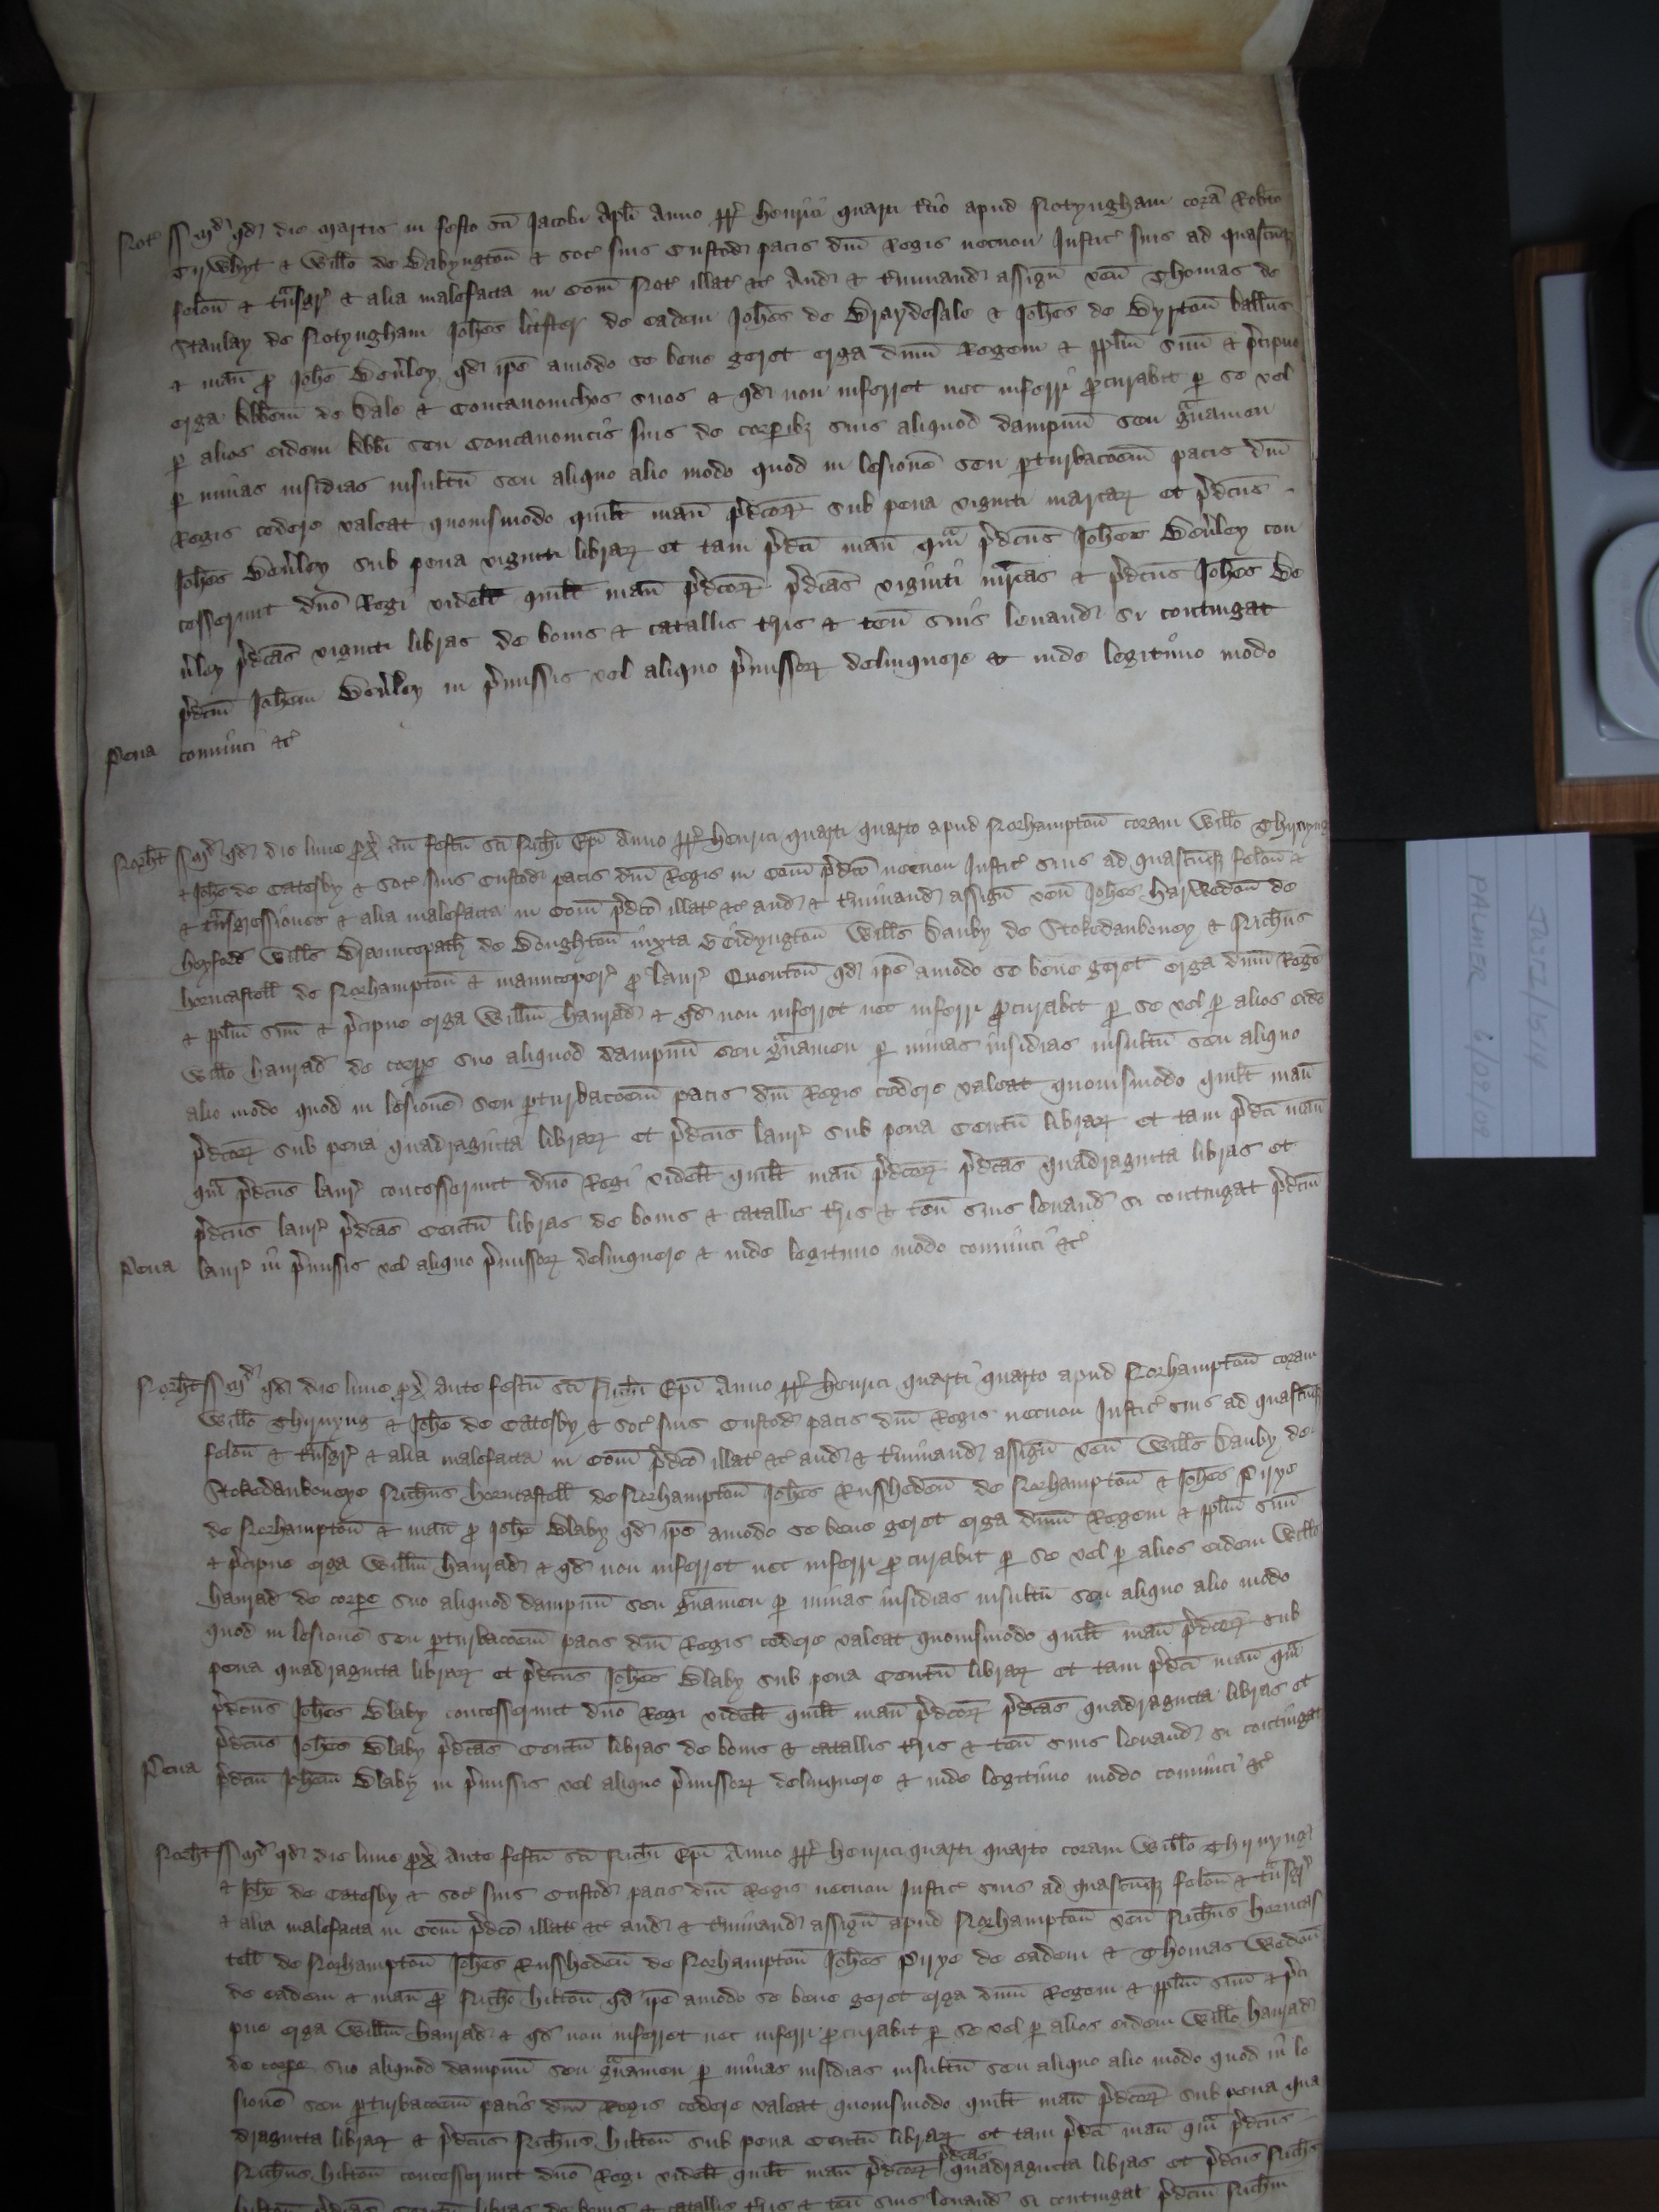 Not' ss md' qd' die Martis in festo sci Jacobi Apli Anno rr' Henrici quarti tcio apud Notyngham cora Robto
Cyrwhyt & Willo de Babyngton & soc' suis Custod' pacis dni Regis necnon Justic' suis ad quascumq
felon & tnsgr' & alia malefacta in Com Not' illat' &c' Aud' & tminand' assign ven Thomas de
Stanlay de Notyngham Johes litster de eadem Johes de Draydesale & Johes de Dypton
& man p Johe Benley qd' ipe amodo se bene geret erga dnm Regem & pplm suu & pcipue
erga Abbem de Dale & Concanonichos suos & qd' non inferret nec inferri pcurabit p se vel
p alios eidem Abbi seu Concanonicis suis de corpibz suis aliquod dampnu seu gnamen
p minas insidias insultu seu aliquo alio modo quod in lesione seu pturbacoem pacis dni
Regis cedere valeat quovismodo quilt man pdcor sub pena viginti marcar et pdcus
Johes Benley sub pena viginti librar et tam pdci man qm pdcus Johes Benley con
cesserunt dno Regi videlt quilt man pdcor pdcas viginti mrcas & pdcus Johes Be
nley pdcas viginti libras de bonis & catallis tris & ten suis levand' si contingat
pdcm Johem Benley in pmissis vel aliquo pmissor delinquere & inde legitimo modo
Pena convinci &c'
Norht ss md' qd' die lune px an festu sci Richi Epi Anno rr' Henrici quarti quarto apud Norhampton coram Willo Thyrnyng
& Johe de Catesby & soc' suis Custod' pacis dni Regis in Com pdco necnon Justic' suis ad quascumq felon &
& tnsgressiones & alia malefacta in Com pdco illat' &c' aud' & tminand' assign ven Johes Harwedon de
Heyford Wills Braunccepath de Boughton iuxta Geidyngton Wills Dauby de Stokedaubeney & Richus
Horncastell de Norhampton & manuceper' p laur' Quenton qd' ipe amodo se bene geret erga dnm Rege
& pplm suu & pcipue erga Willm Haurad' & qd' non inferret nec inferri pcurabit p se vel p alios eide
Willo Haurad' de corpe suo aliquod dampnu seu gnamen p minas insidias insultu seu aliquo
alio modo quod in lesione seu pturbacoem pacis dni Regis cedere valeat quovismodo quilt man
pdcor sub pena quadraginta librar et pdcus laur' sub pena Centu librar et tam pdci man
qm pdcus laur' concesserunt dno Regi videlt quilt man pdcor pdcas quadraginta libras et
pdcus laur' pdcas Centu libras de bonis & catallis tris & ten suis levand' si contingat pdcm
Pena laur' in pmissis vel aliquo pmissor delinquere & inde legitimo modo convinci &c'
Norht ss md' qd' die lune px ante festu sci Richi Epi Anno rr' Henrici quarti quarto apud Norhampton coram
Willo Thyrnyng & Johe de Catesby & soc' suis Custod' pacis dni Regis necnon Justic' suis ad quascumq
felon & tnsgr' & alia malefacta in Com pdco illat' &c' aud' & tminand' assign ven Wills Dauby de
Stokedaubeneye Richus Horncastell de Norhampton Johes Russheden de Norhampton & Johes Pirye
de Norhampton & man p Johe Blaby qd' ipe amodo se bene geret erga dnm Regem & pplm suu
& pcipue erga Willm Haurad' & qd' non inferret nec inferri pcurabit p se vel p alios eidem Willo
Haurad' de corpe suo aliquod dampnu seu gnamen p minas insidias insultu seu aliquo alio modo
quod in lesione seu pturbacoem pacis dni Regis cedere valeat quovismodo quilt man pdcor sub
pena quadraginta librar et pdcus Johes Blaby sub pena Centu librar et tam pdci man qm
pdcus Johes Blaby concesserunt dno Regi videlt quilt man pdcor pdcas quadraginta libras et
pdcus Johes Blaby pdcas Centu libras de bonis & catallis tris & ten suis levand' si contingat
Pena pdcm Johem Blaby in pmissis vel aliquo pmissor delinquere & inde legitimo modo convinci &c'
Norht ss md' qd' die lune px ante festu sci Richi Epi Anno rr' Henrici quarti quarto coram Willo Thyrnyng
& Johe de Catesby & soc' suis Custod' pacis dni Regis necnon Justic' suis ad quascumq felon & tnsgr'
& alia malefacta in Com pdco illat' &c' aud' & tminand' assign apud Norhampton ven Richus Horncas
tell de Norhampton Johes Russheden de Norhampton Johes Pirye de eadem & Thomas Wedon
de eadem & man p Richo Hilton qd' ipe amodo se bene geret erga dnm Regem & pplm suu & pci
pue erga Willm Haurad' & qd' non inferret nec inferri pcurabit p se vel p alios eidem Willo Haurad'
de corpe suo aliquod dampnu seu gnamen p minas insidias insultu seu aliquo alio modo quod in le
sione seu pturbacoem pacis dni Regis cedere valeat quovismodo quilt man pdcor sub pena qua
draginta librar & pdcus Richus Hilton sub pena Centu librar et tam pdci man qm pdcus
Richus Hilton concesserunt dno Regi videlt quilt man pdcor pdcas quadraginta libras et pdcus Richus
Hilton pdcas Centu libras de bonis & catallis tris & ten suis levand' si contingat pdcm Richm
JUST2/1514
PALMER 6/02/09